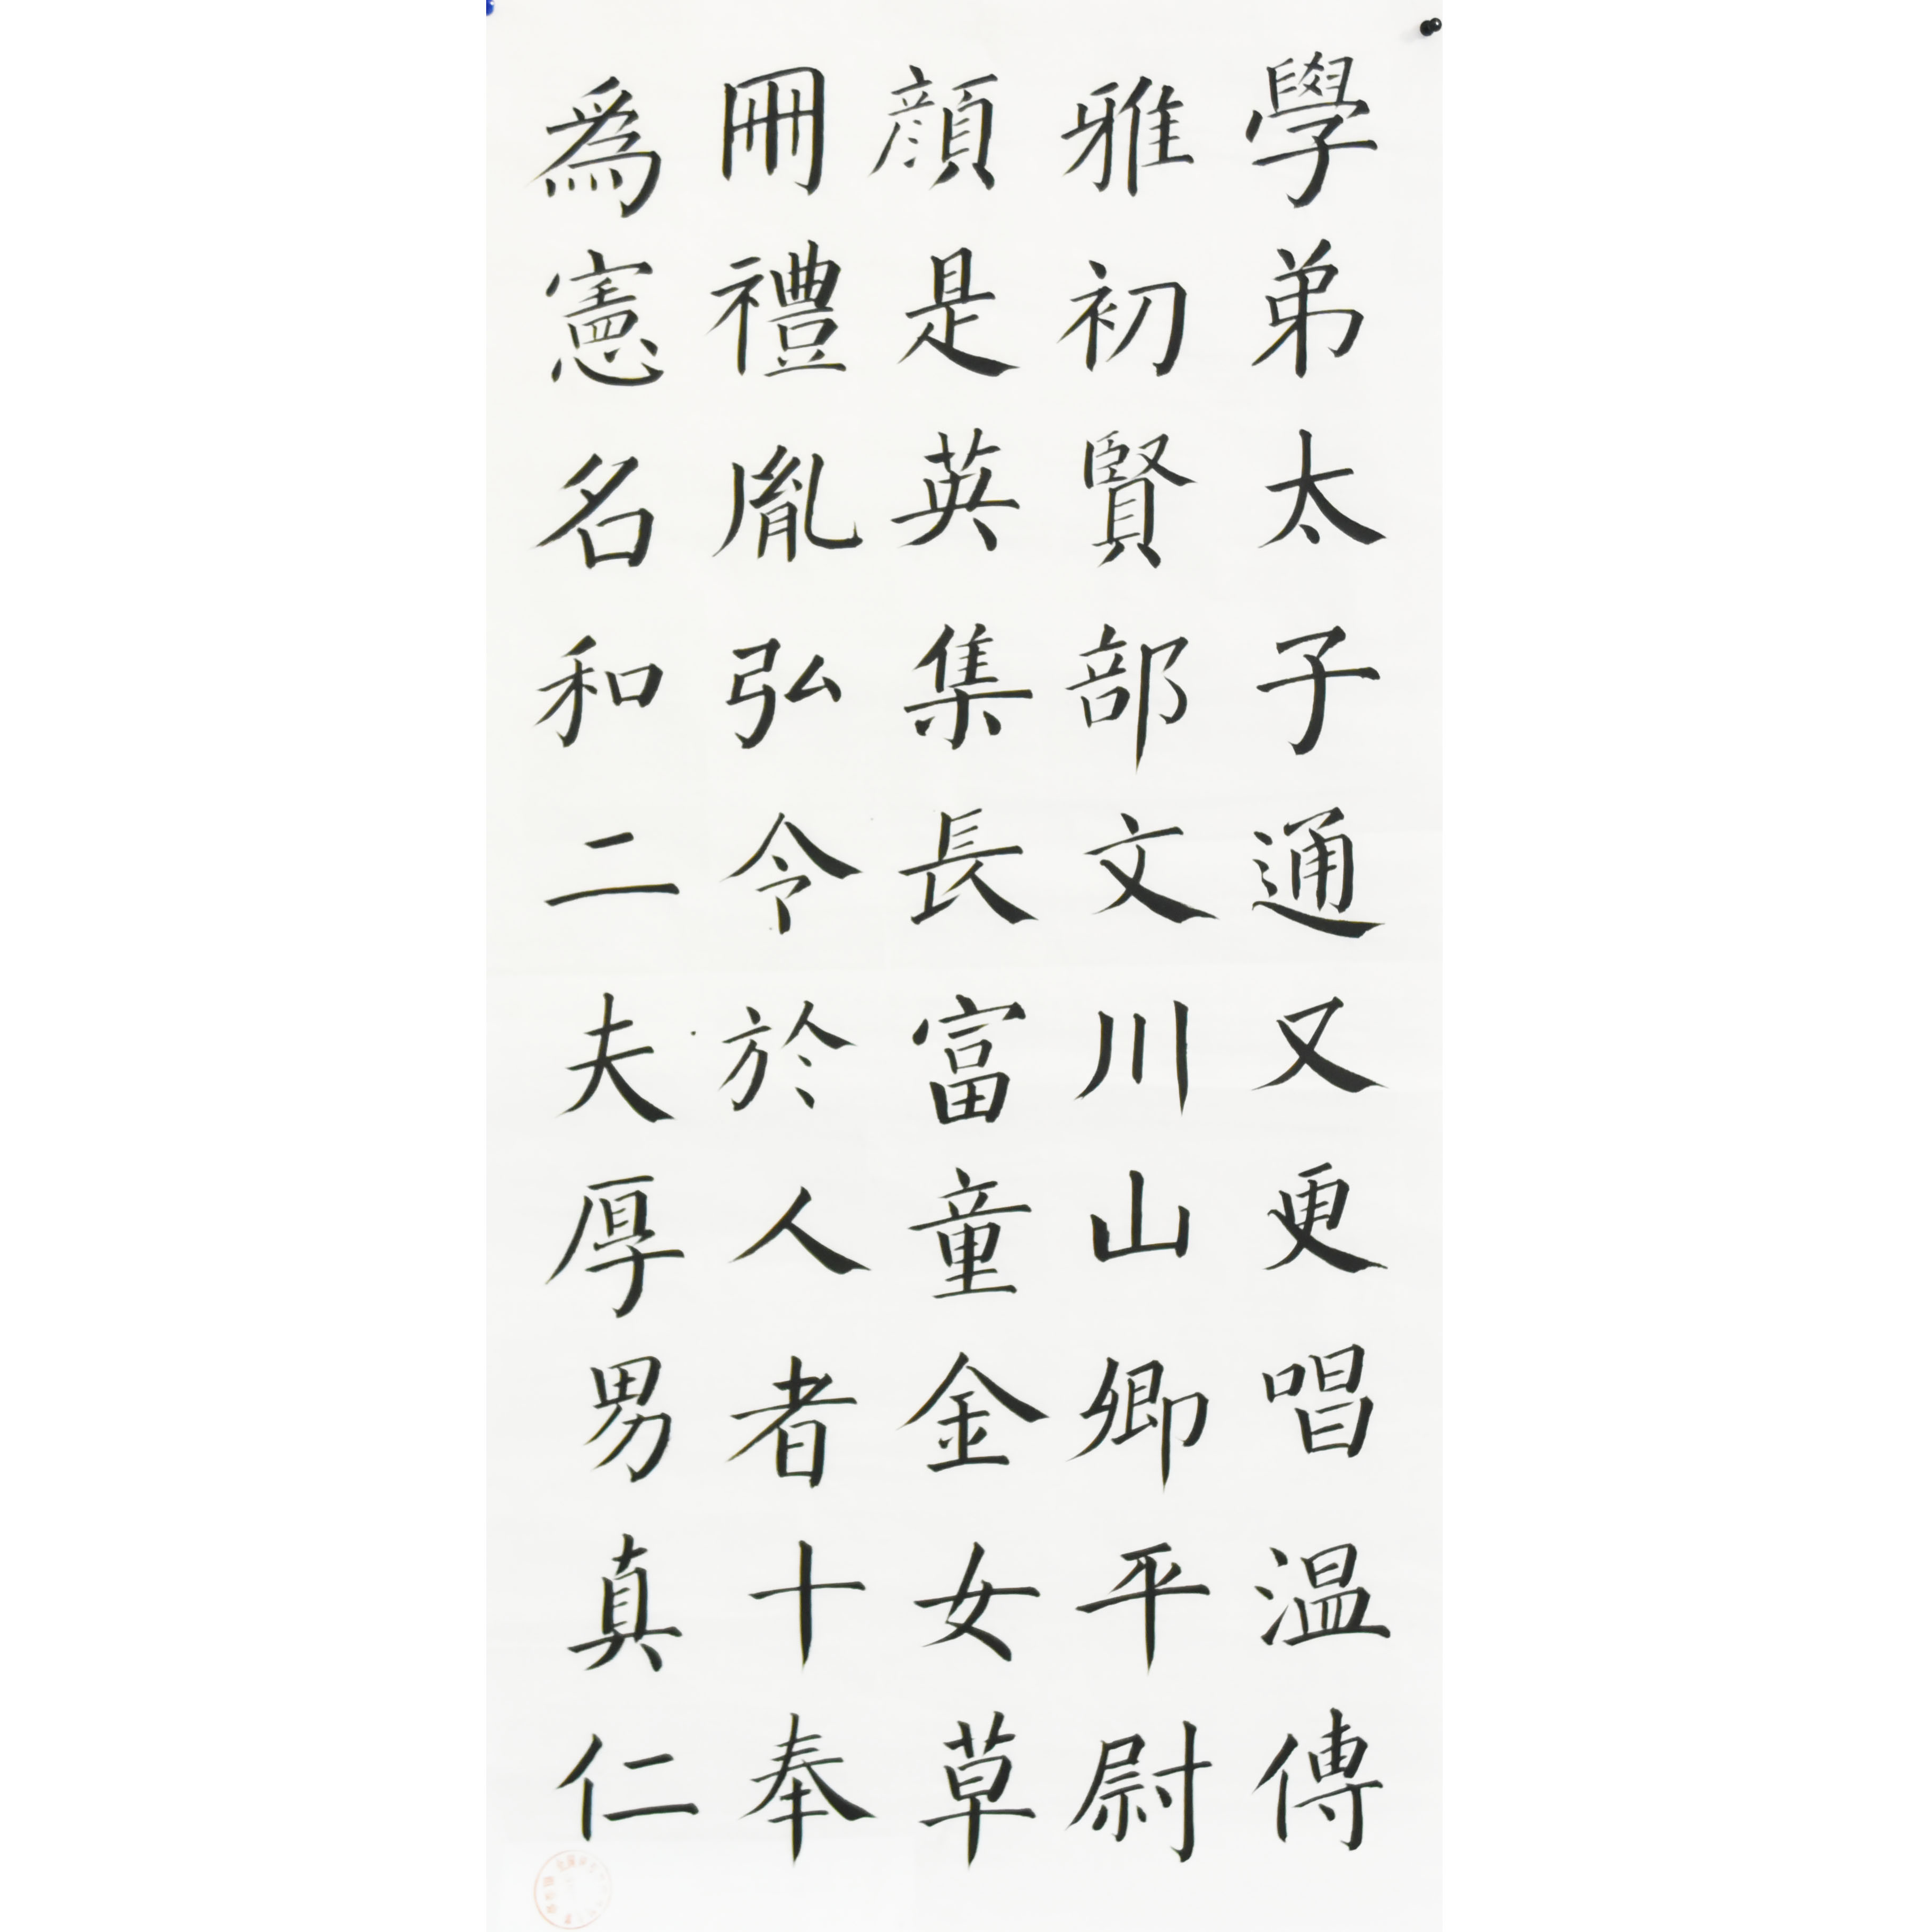 學弟太子通又更唱温傳
雅初賢部文川山卿平尉
顔是英集長富童金女草
冊禮胤弘令於人者十奉
為憲名和二夫厚男真仁